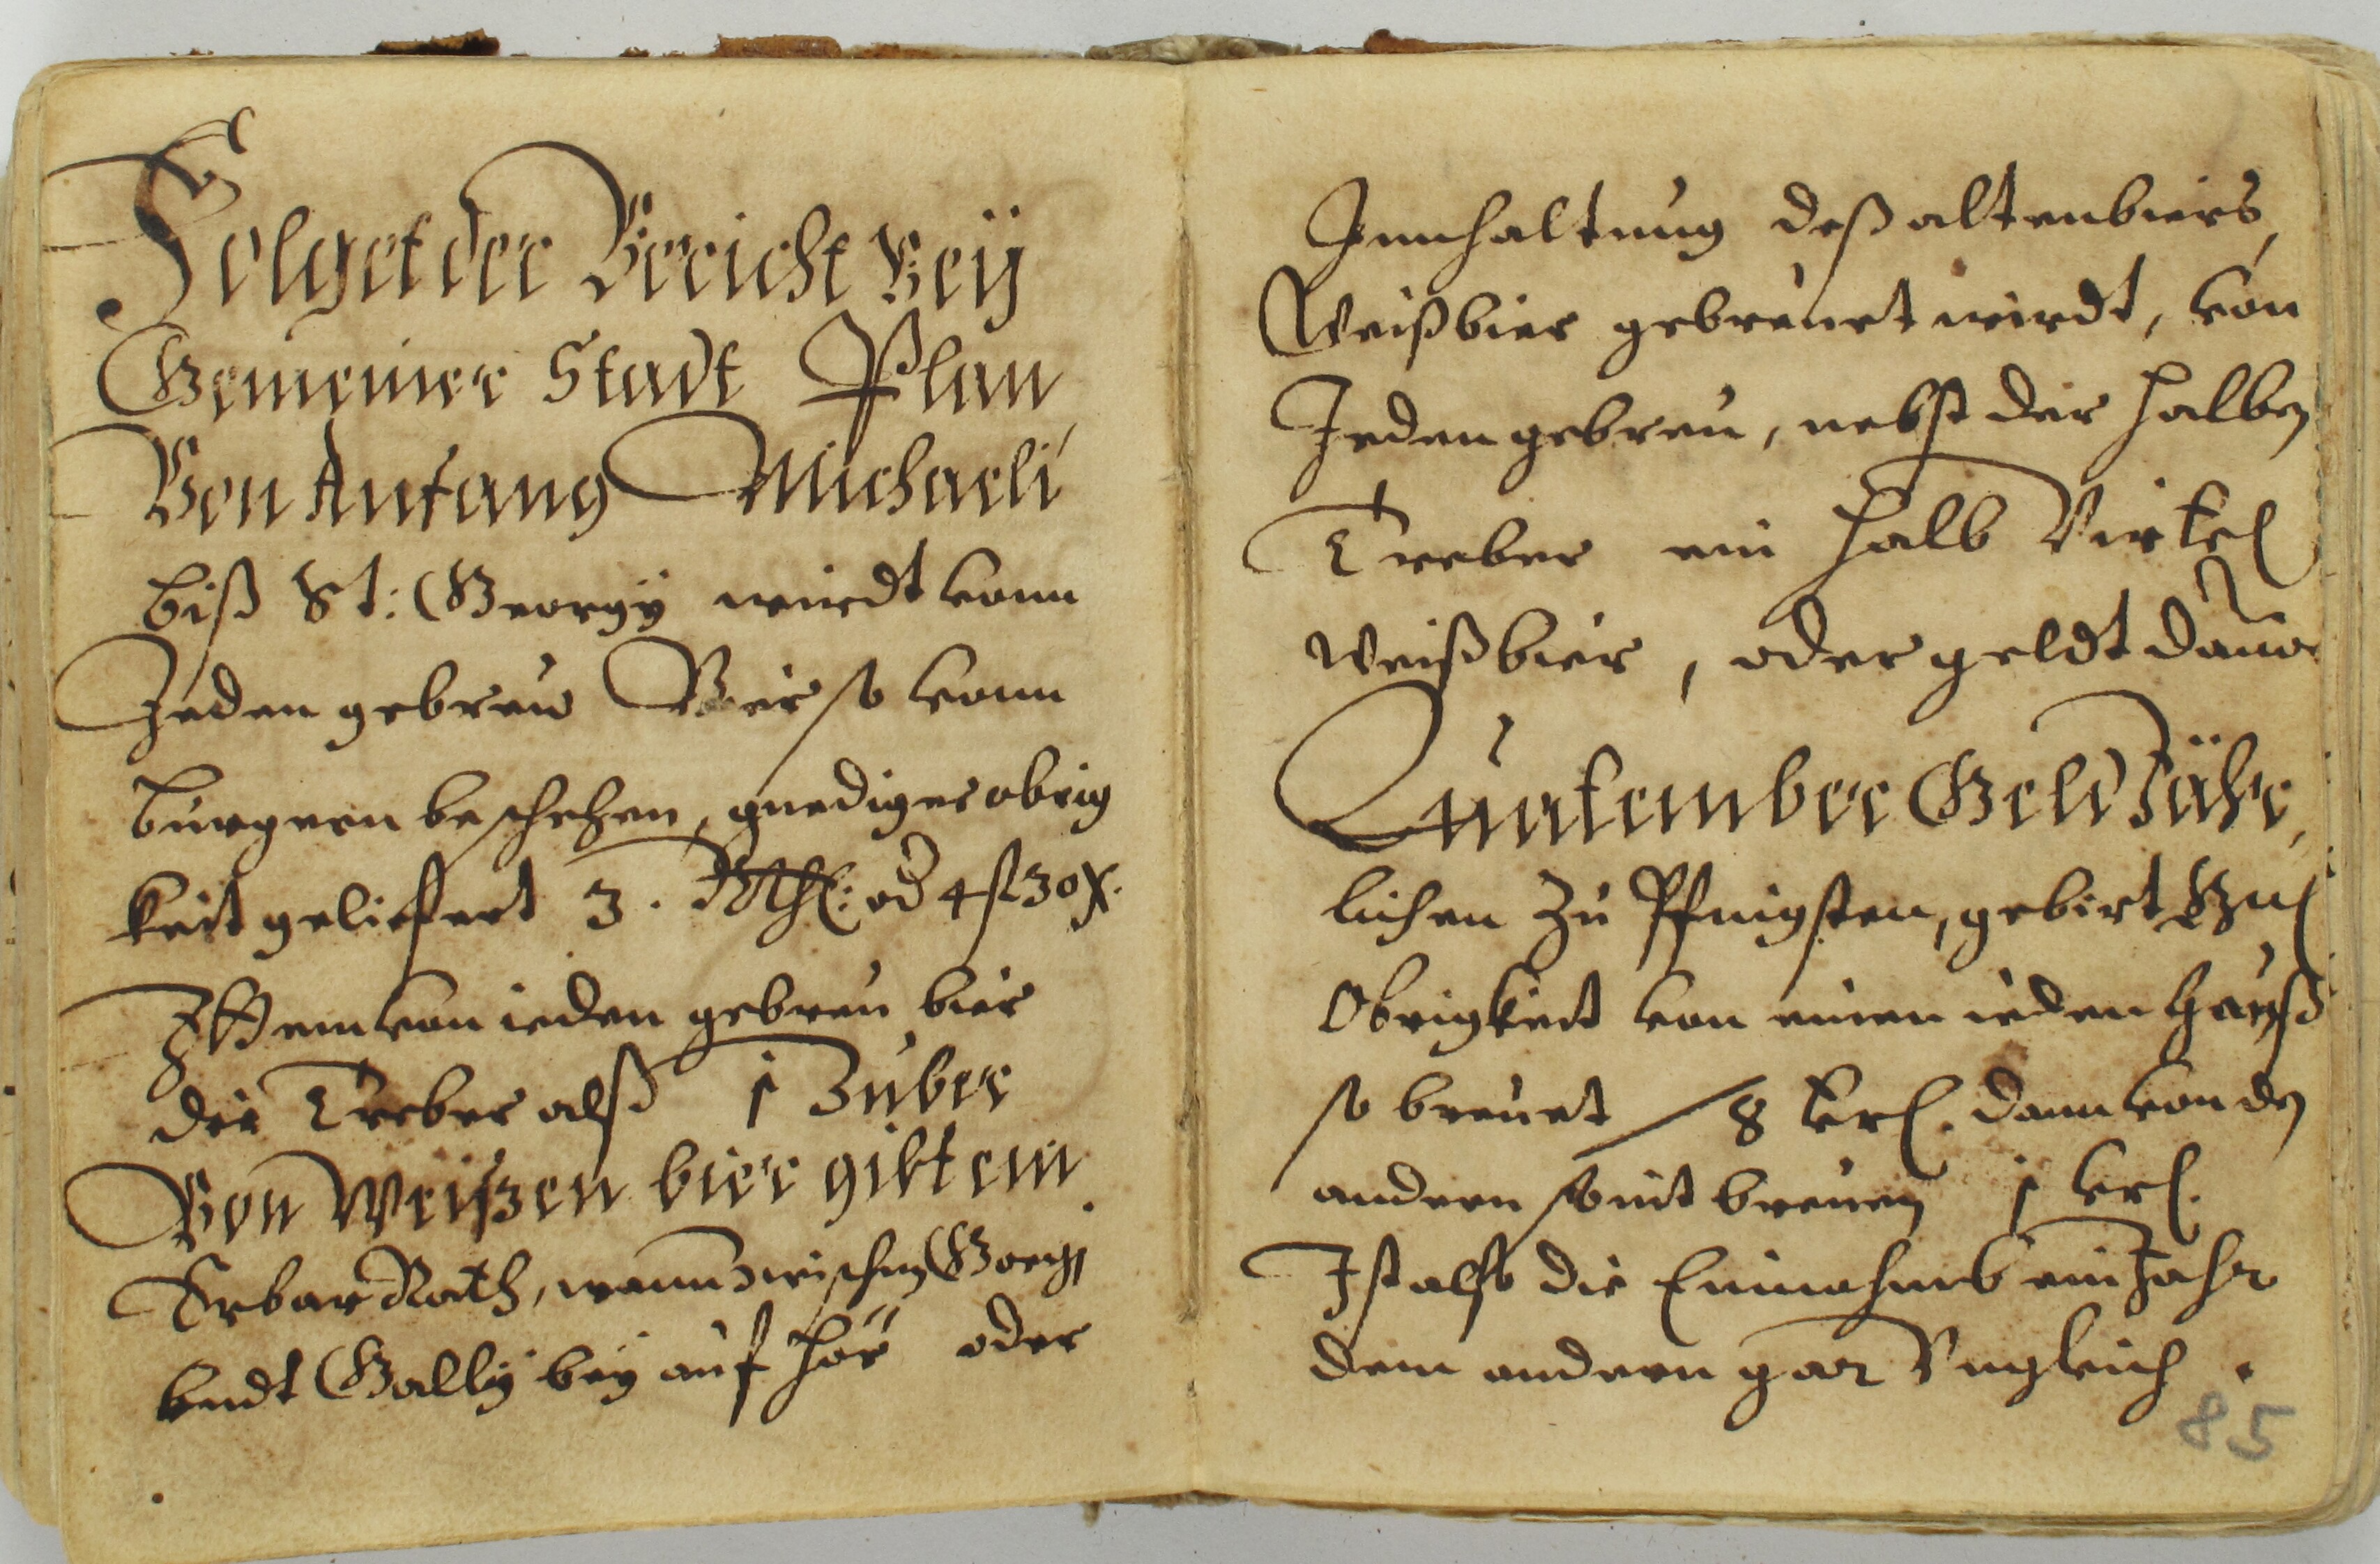 Folget der Bericht Beÿ
Gemeiner Stadt Plan
Von Anfang Michaeli
biß St: Georgÿ wirdt vonn
Jeden gebreu Bier so vonn
burgern beschehen, gnediger obrig
keit gelieffert 3. Rthl: od 4 fl 30 x.
Jttem von ieden gebreu bier
die Treber alß 1 Zuber
Von Weiszen bier gibt ein
Erbar Rath, wann zwischen Georgi
vndt Gallÿ beÿ auf hör oder
Innhaltung deß altenbiers,
Weißbier gebreuet wirdt, von
Jeden gebreu, nebst der halben
Treber ein halb Virtel
weißbier, oder geldt dauor
Quatember Geld Jähr,
lichen zu Pfingsten, gebirt Gnl
Obrigkeit von einen ieden Hauß
so breuet 8 krl. dann von den
andern so nit breuen 1 krl.
Ist also die Einnahmb ein Jahr
dem andern gar Vngleich.
85